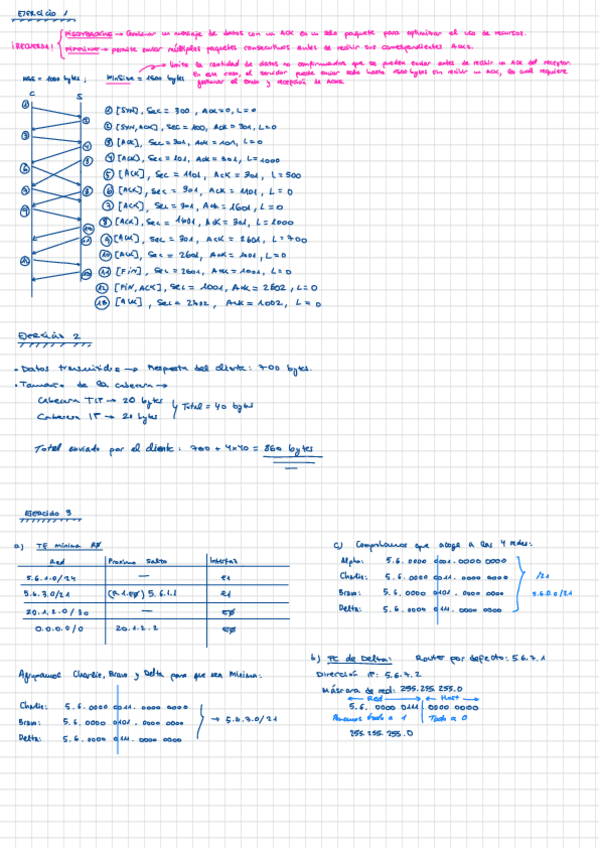 Ejercicio 1
¡RECUERDA!
Piggybacking → Combinar un mensaje de datos con un ACK en un solo paquete para optimizar el uso de recursos.
Pipelining → permite enviar múltiples paquetes consecutivos antes de recibir sus correspondientes ACKs.
limita la cantidad de datos no confirmados que se pueden enviar antes de recibir un ACK del receptor.
En este caso, el servidor puede enviar solo hasta 1500 bytes sin recibir un ACK, lo cual requiere
gestionar el envío y recepción de ACKs.
MSS = 1000 bytes ; WinSize = 1500 bytes
C S
① [SYN], Sec = 300, Ack=0, L=0
② [SYN,ACK], Sec = 100, Ack = 301, L=0
③ [ACK], Sec = 301, Ack = 101, L=0
④ [ACK], Sec = 101, Ack = 301, L=1000
⑤ [ACK], Sec = 1101, Ack = 301, L=500
⑥ [ACK], Sec = 301, Ack = 1101, L=0
⑦ [ACK], Sec = 301, Ack = 1601, L=0
⑧ [ACK], Sec = 1601, Ack = 301, L=1000
⑨ [ACK], Sec = 301, Ack = 2601, L=700
⑩ [ACK], Sec = 2601, Ack = 1001, L=0
⑪ [FIN], Sec = 2601, Ack = 1001, L=0
⑫ [FIN, ACK], Sec = 1001, Ack = 2602, L=0
⑬ [ACK], Sec = 2602, Ack = 1002, L=0
Ejercicio 2
• Datos transmitidos → Respuesta del cliente: 700 bytes.
• Tamaño de la cabecera →
Cabecera TCP → 20 bytes
Cabecera IP → 20 bytes
Total = 40 bytes
Total enviado por el cliente: 700 + 4x40 = 860 bytes
Ejercicio 3
a) TE mínima R0
Red Próximo Salto Interfaz
5.6.1.0/24 — e1
5.6.3.0/21 5.6.1.1 e1
20.1.2.0/30 — e0
0.0.0.0/0 20.1.2.2 e0
Agrupamos Charlie, Bravo y Delta para que sea mínima:
Charlie: 5.6. 0000 0011. 0000 0000
Bravo: 5.6. 0000 0101. 0000 0000
Delta: 5.6. 0000 0111. 0000 0000
→ 5.6.3.0/21
c) Comprobamos que acoge a las 4 redes:
Alpha: 5.6. 0000 0001. 0000 0000
Charlie: 5.6. 0000 0011. 0000 0000
Bravo: 5.6. 0000 0101. 0000 0000
Delta: 5.6. 0000 0111. 0000 0000
/21
5.6.0.0/21
b) PC de Delta: Router por defecto: 5.6.7.1
Dirección IP: 5.6.7.2
Máscara de red: 255.255.255.0
← Red → ← Host →
5.6. 0000 0111 0000 0000
Ponemos todo a 1 Todo a 0
255.255.255.0